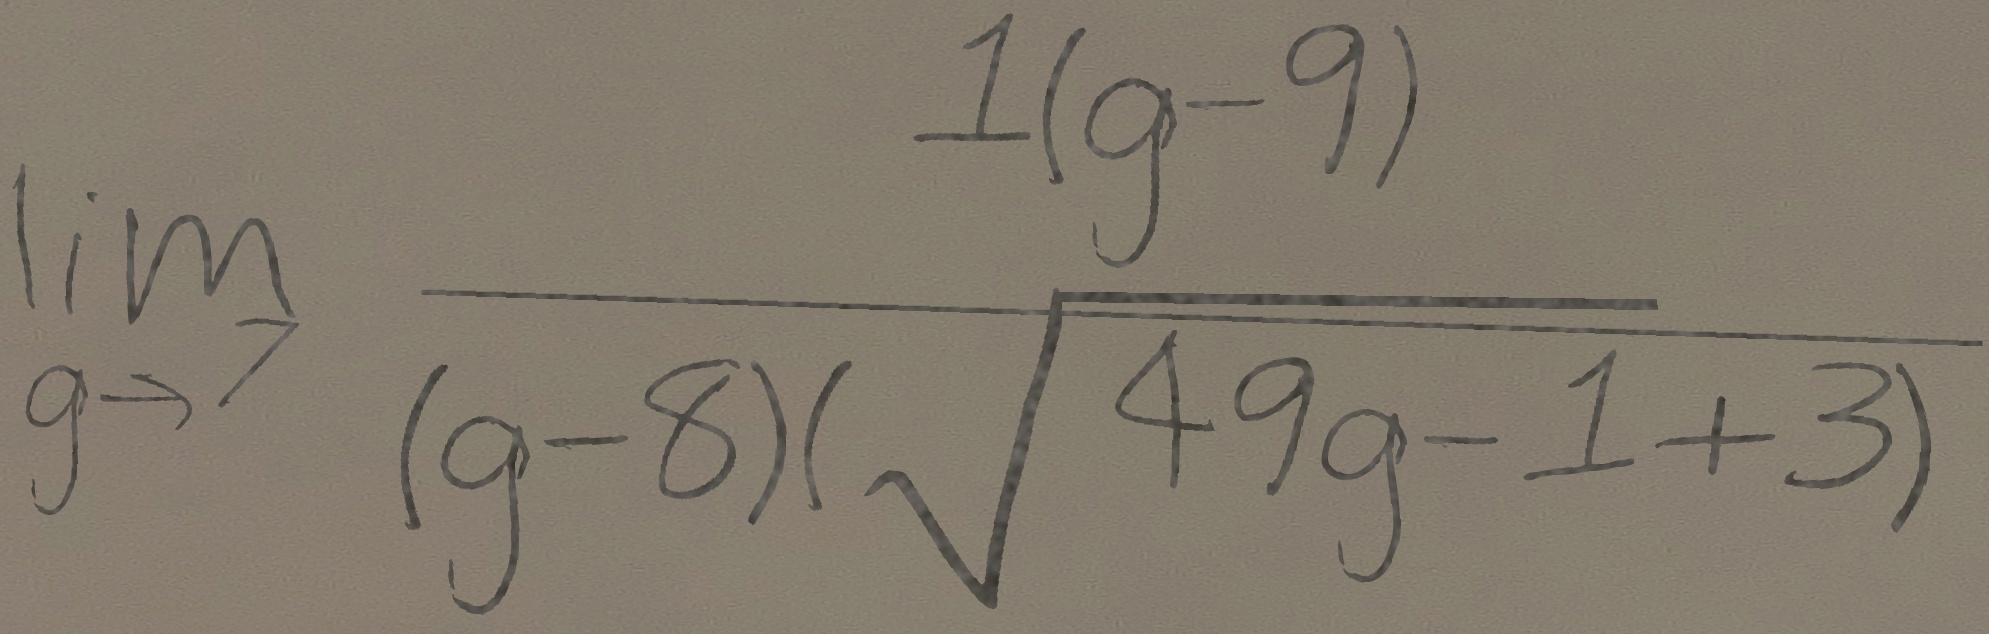 \lim_{g \to 7} \frac{1(g-9)}{(g-8)(\sqrt{49g-1}+3)}